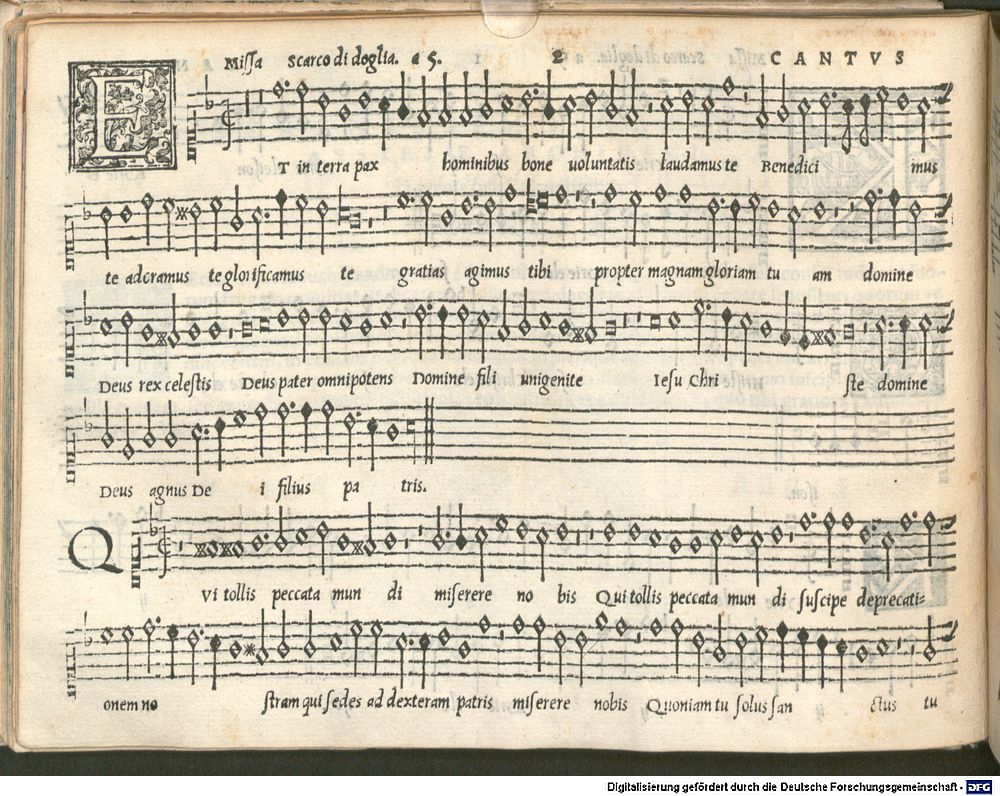 Missa scarco di doglia. a 5. 2 CANTVS
ET in terra pax hominibus bone uoluntatis laudamus te Benedici mus
te adoramus te glorificamus te gratias agimus tibi propter magnam gloriam tu am domine
Deus rex celestis Deus pater omnipotens Domine fili unigenite Iesu Chri ste domine
Deus agnus De i filius pa tris.
QVi tollis peccata mun di miserere no bis Qui tollis peccata mun di suscipe deprecati=
onem no stram qui sedes ad dexteram patris miserere nobis Quoniam tu solus san ctus tu
Digitalisierung gefördert durch die Deutsche Forschungsgemeinschaft - DFG